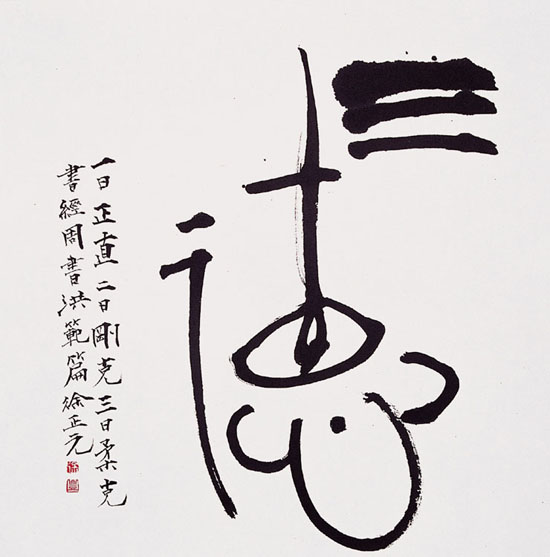 三德
一曰正直二曰剛克三曰柔克
書經周書洪範篇徐正元